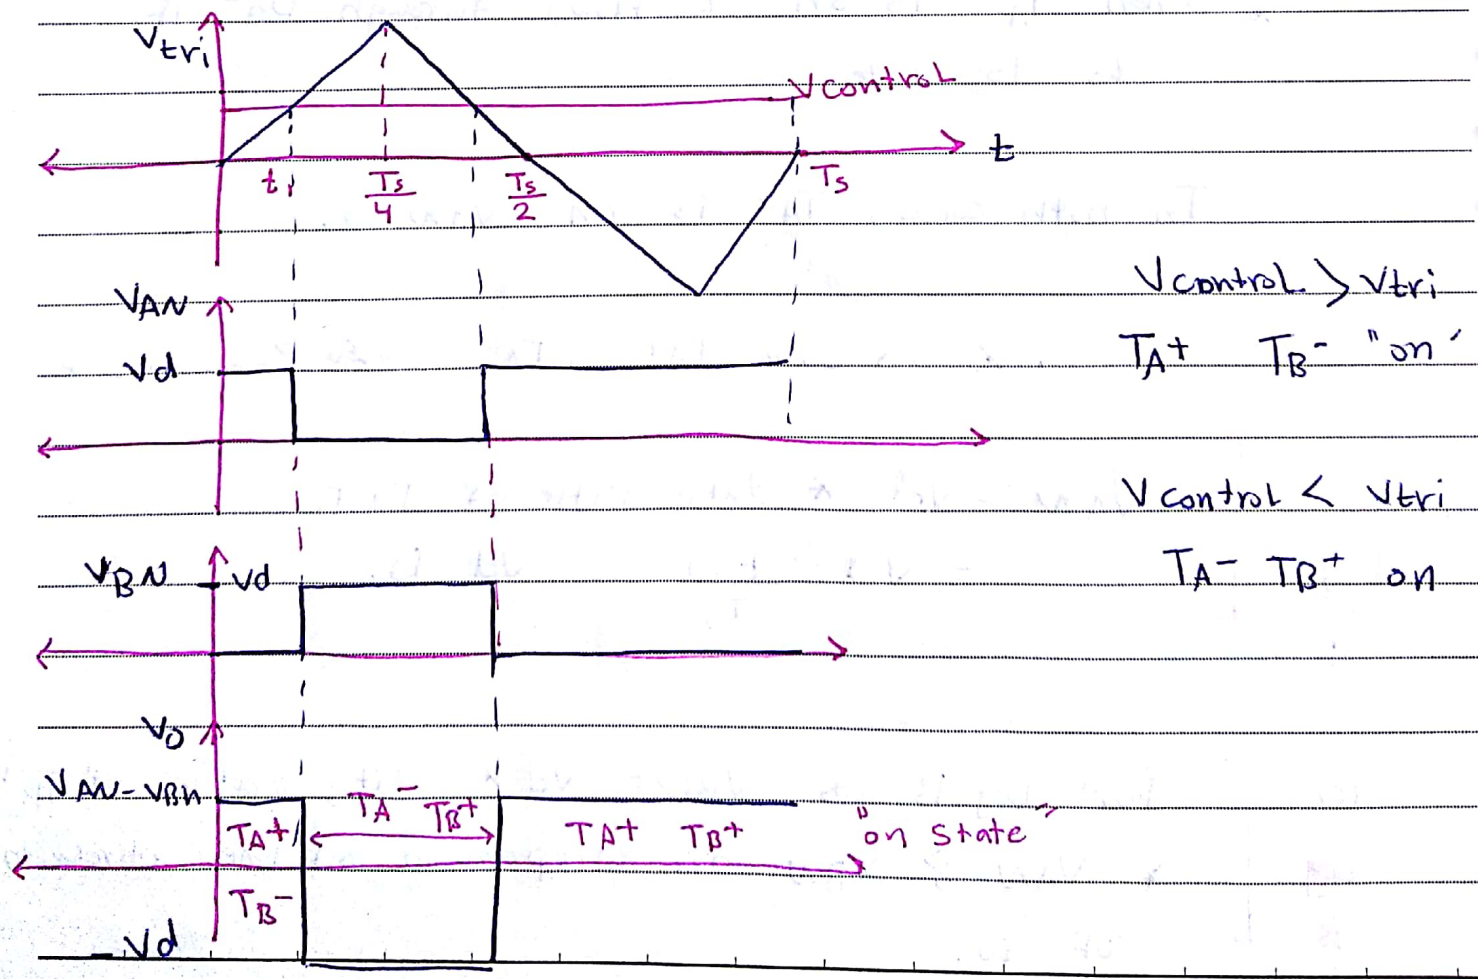 Vtri
Vcontrol
t
t1
Ts/4
Ts/2
Ts
Vcontrol > Vtri
TA+ TB- "on"
VAN
Vd
Vcontrol < Vtri
TA- TB+ on
VBN
Vd
Vo
VAN-VBN
TA+
TB-
TA- TB+
TA+ TB+
"on state"
-Vd